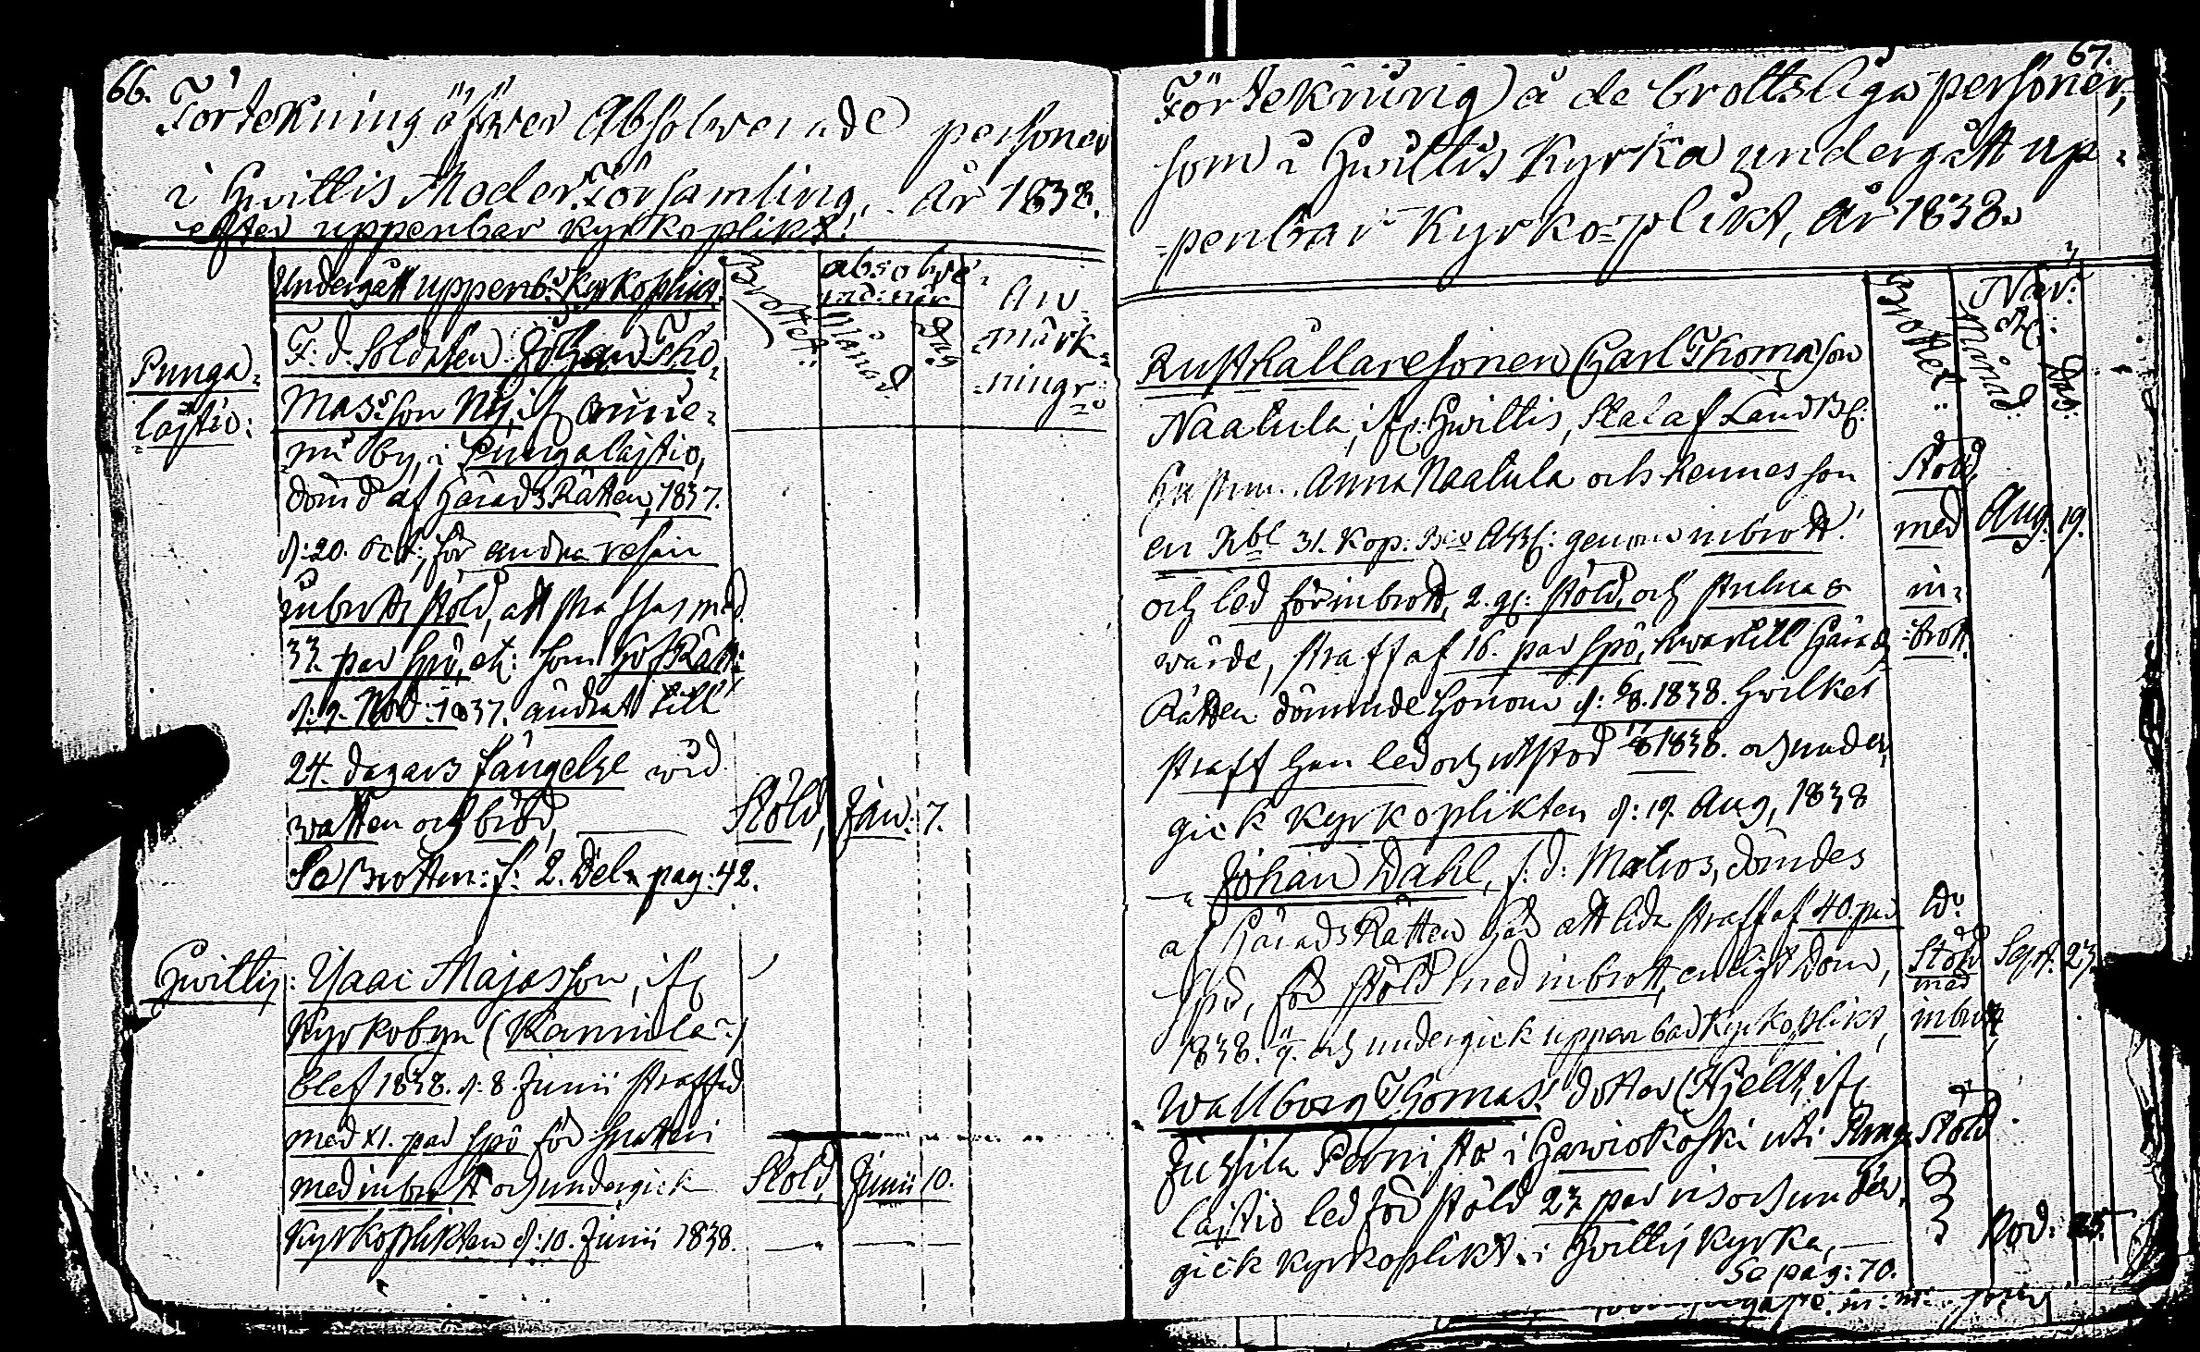 66.
Förtekning öfwer Absolwerade personer
i Hwittis Moder Församling, år 1838.
efter uppenbar kyrkoplikt.
Undergått uppenb: kyrkoplikt.
Brottet.
absolwe-
Månad
Dag
An-
märk-
ningr:
Punga-
lajtio:
F: d: Soldaten Johan Tho-
masson Ny, if
by, i Pungalajtio,
dömd af HäradsRätten 1837.
d: 20. Oct:, för andra resan
inbrott stöld, att straffas med
33. par spö, etc: som HofRätt:
d: 9. Nov: 1837. ändrat till
24. dagars fängelse wid
watten och bröd,
Stöld, Jan: 7.
Se Brottm: f: 2. Del. pag: 42.
Hwittis: Isaac Majasson, if
Kyrkobyn (Kannila?)
blef 1838. d: 8. Junii straffad
med XI. par spö för snatteri
med inbrott och undergick
Stöld, Junii 10.
kyrkoplikten d: 10. Junii 1838.
67.
Förtekning å de brottsliga personer,
som i Hwittis Kyrka undergått up-
penbar Kyrko-plikt, år 1838.
Brottet
När:
Månad.
Dag:
Rusthållaresonen Carl Thomasson
Naatula, if: Hwittis, Stal af
Anna Naatula och hennes son
en Rbl 31. kop: genom inbrott!
och led för inbrott, 2. g: stöld, och stulna
wärde, straff af 16. par spö, hwartill Härads
Rätten dömmde honom d: 6/8. 1838. hwilket
straff han led och utstod 17/8 1838. och under-
gick kyrkoplikten d: 19. Aug, 1838
Stöld,
med
in-
brott.
Aug: 19.
Johan Dahl, f: d: Matros, dömdes
af HäradsRätten här att lida straff af 40. par
spö, för stöld med inbrott, enligt dom,
1838. och undergick uppenbar Kyrkoplikt,
do
Stöld
med
inbrott,
Sept. 23.
Wallborg Thomas dotter (Hjelt, if
Jussila Pernisto i Hawiokoski uti Punga-
lajtio led för stöld 27 par ris och under-
gick kyrkoplikt i Hwittis kyrka,
Stöld
Nov: 25.
Se pag: 70.